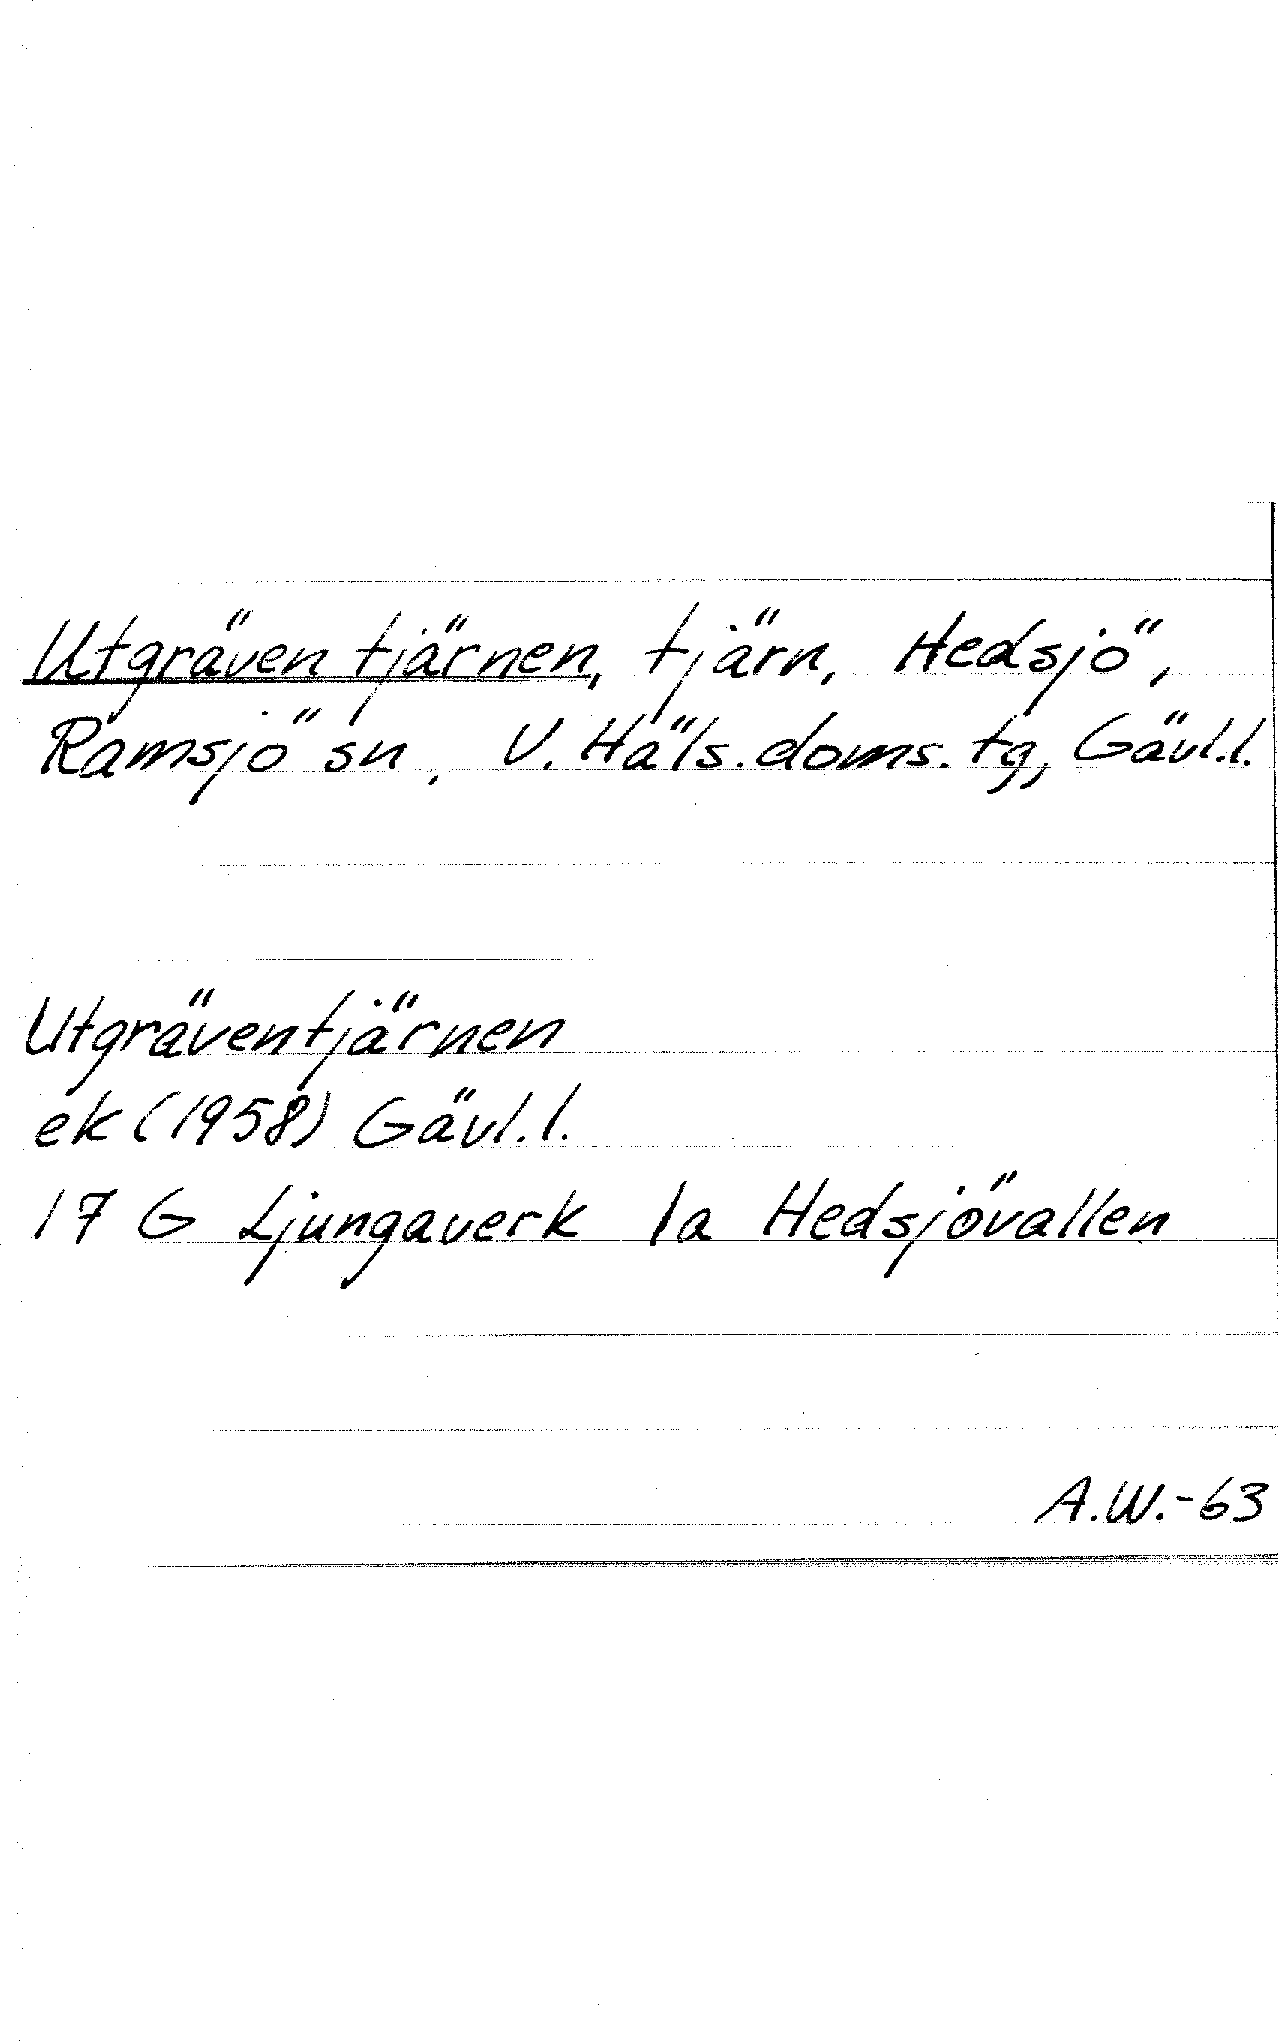 Utgräventjärnen, tjärn, Hedsjö,
Ramsjö sn, V. Häls. doms. tg, Gävl.l.
Utgräventjärnen
ek (1958) Gävl.l.
17 G Ljungaverk 1a Hedsjövallen
A.W.-63